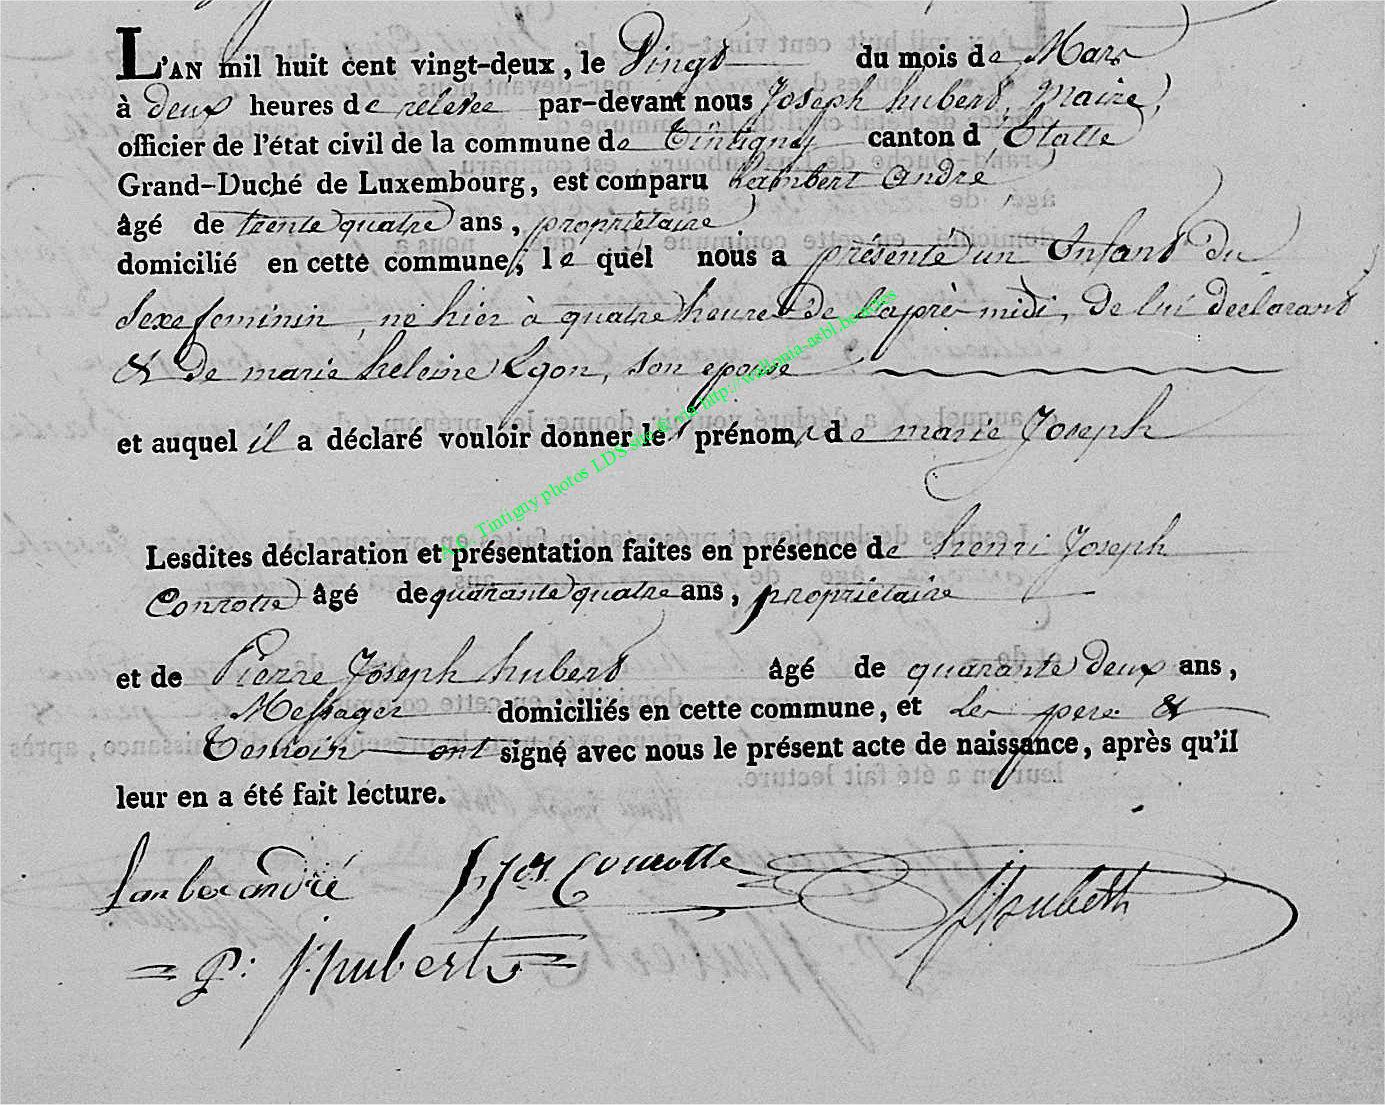 L'AN mil huit cent vingt-deux, le Vingt du mois de Mars
à deux heures de relevée par-devant nous Joseph hubert, Maire,
officier de l'état civil de la commune de Tintigny canton d'Etalle
Grand-Duché de Luxembourg, est comparu Lambert André
âgé de trente quatre ans, propriétaire
domicilié en cette commune, le quel nous a présenté un Enfant du
Sexe feminin, né hier à quatre heures de l'après midi, de lui declarant
& de marie heleine Lyon, son epouse
et auquel il a déclaré vouloir donner les prénoms de marie Joseph
Lesdites déclaration et présentation faites en présence de henri Joseph
Conrotte âgé de quarante quatre ans, propriétaire
et de Pierre Joseph hubert âgé de quarante deux ans,
Messager domiciliés en cette commune, et les pere &
Temoin ont signé avec nous le présent acte de naissance, après qu'il
leur en a été fait lecture.
Lamber andré h, Jos Conrotte J Hubert
P: J: hubert
A.G. Tintigny photos LDS site & via http://wallonia-asbl.be/actes